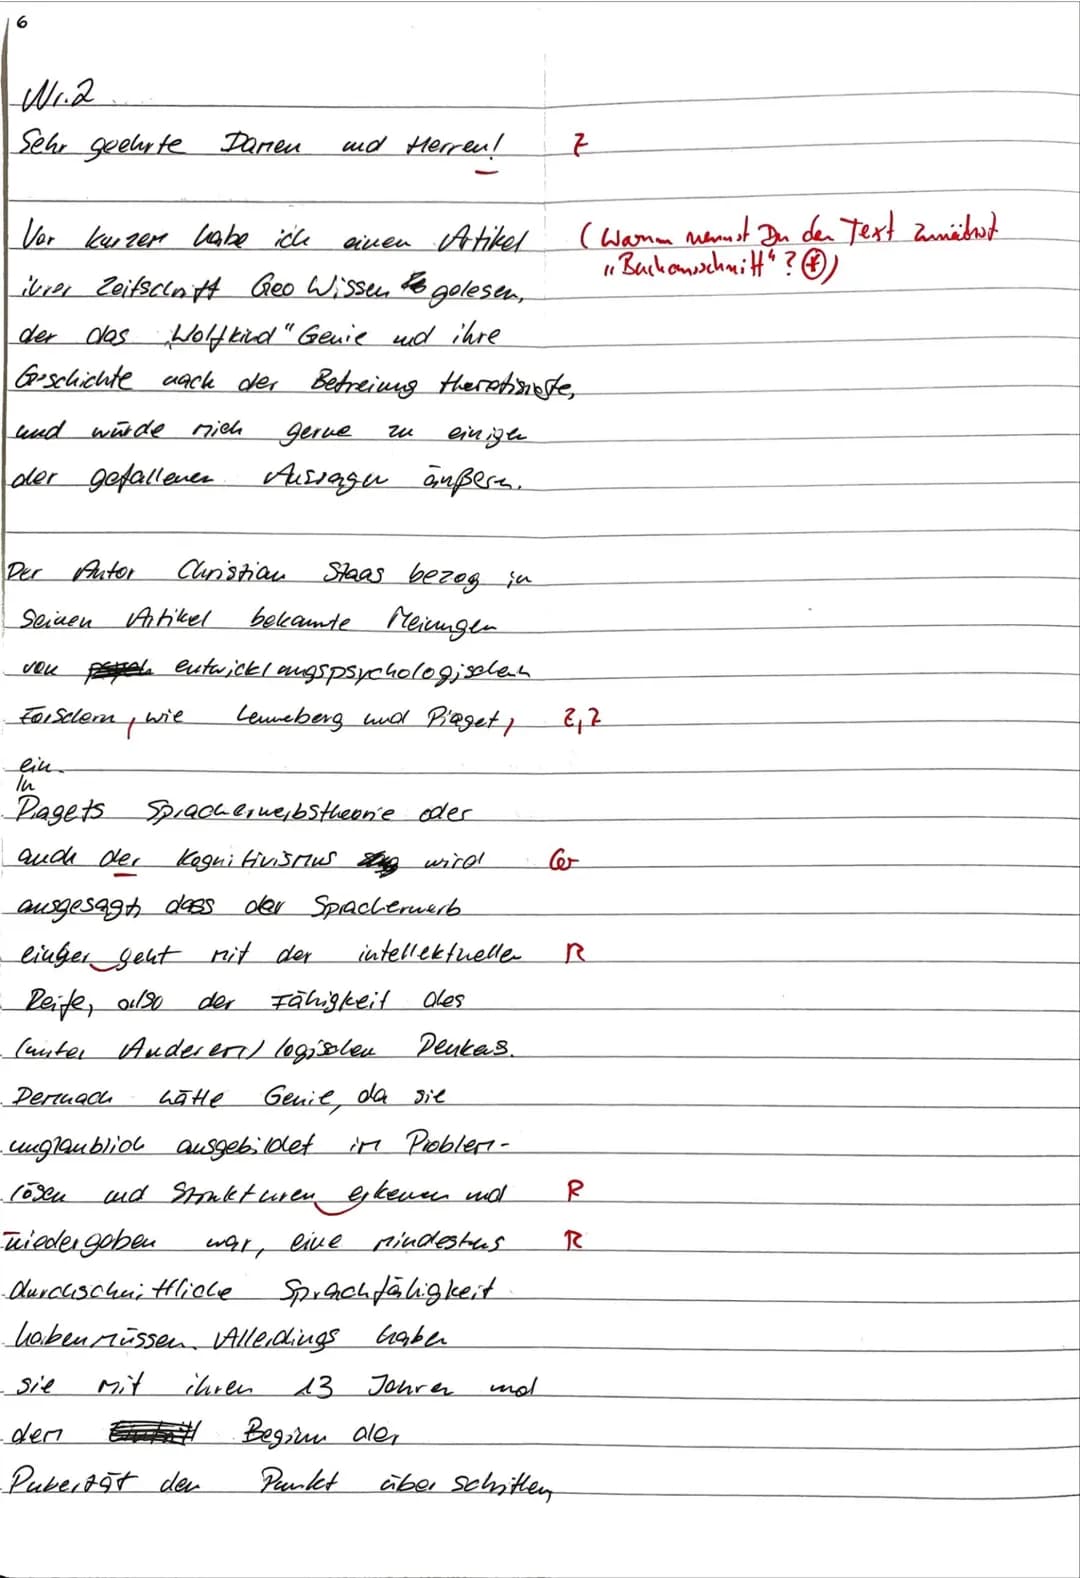 6
Nr. 2
Sehr geehrte Damen und Herren! Z
Vor kurzem habe ich einen Artikel (Warum nennst Du den Text zunächst
ihrer Zeitschrift Geo Wissen gelesen, "Buchausschnitt"? (*))
der das "Wolfkind" Genie und ihre
Geschichte nach der Befreiung thematisierte,
und würde mich gerne zu einigen
der gefallenen Aussagen äußern.
Der Autor Christian Staas bezog in
seinen Artikel bekannte Meinungen
von entwicklungspsychologischen
Forschern, wie Lenneberg und Piaget, Z, Z
ein.
In
Piagets Spracherwerbstheorie oder
auch der Kognitivismus wird Gr
ausgesagt, dass der Spracherwerb
einher geht mit der intellektuellen R
Reife, also der Fähigkeit des
(unter Anderem) logischen Denkens.
Demnach hätte Genie, da sie
unglaublich ausgebildet im Problem-
lösen und Strukturen erkennen und R
wiedergeben war, eine mindestens R
durchschnittliche Sprachfähigkeit
haben müssen. Allerdings haben
sie mit ihren 13 Jahren und
dem Beginn der
Pubertät den Punkt überschritten,